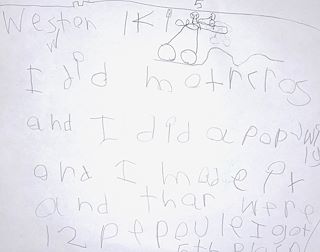 Westen
I did motrcros
and I did a pop
and I made it
and thar were
12 pepoule I got